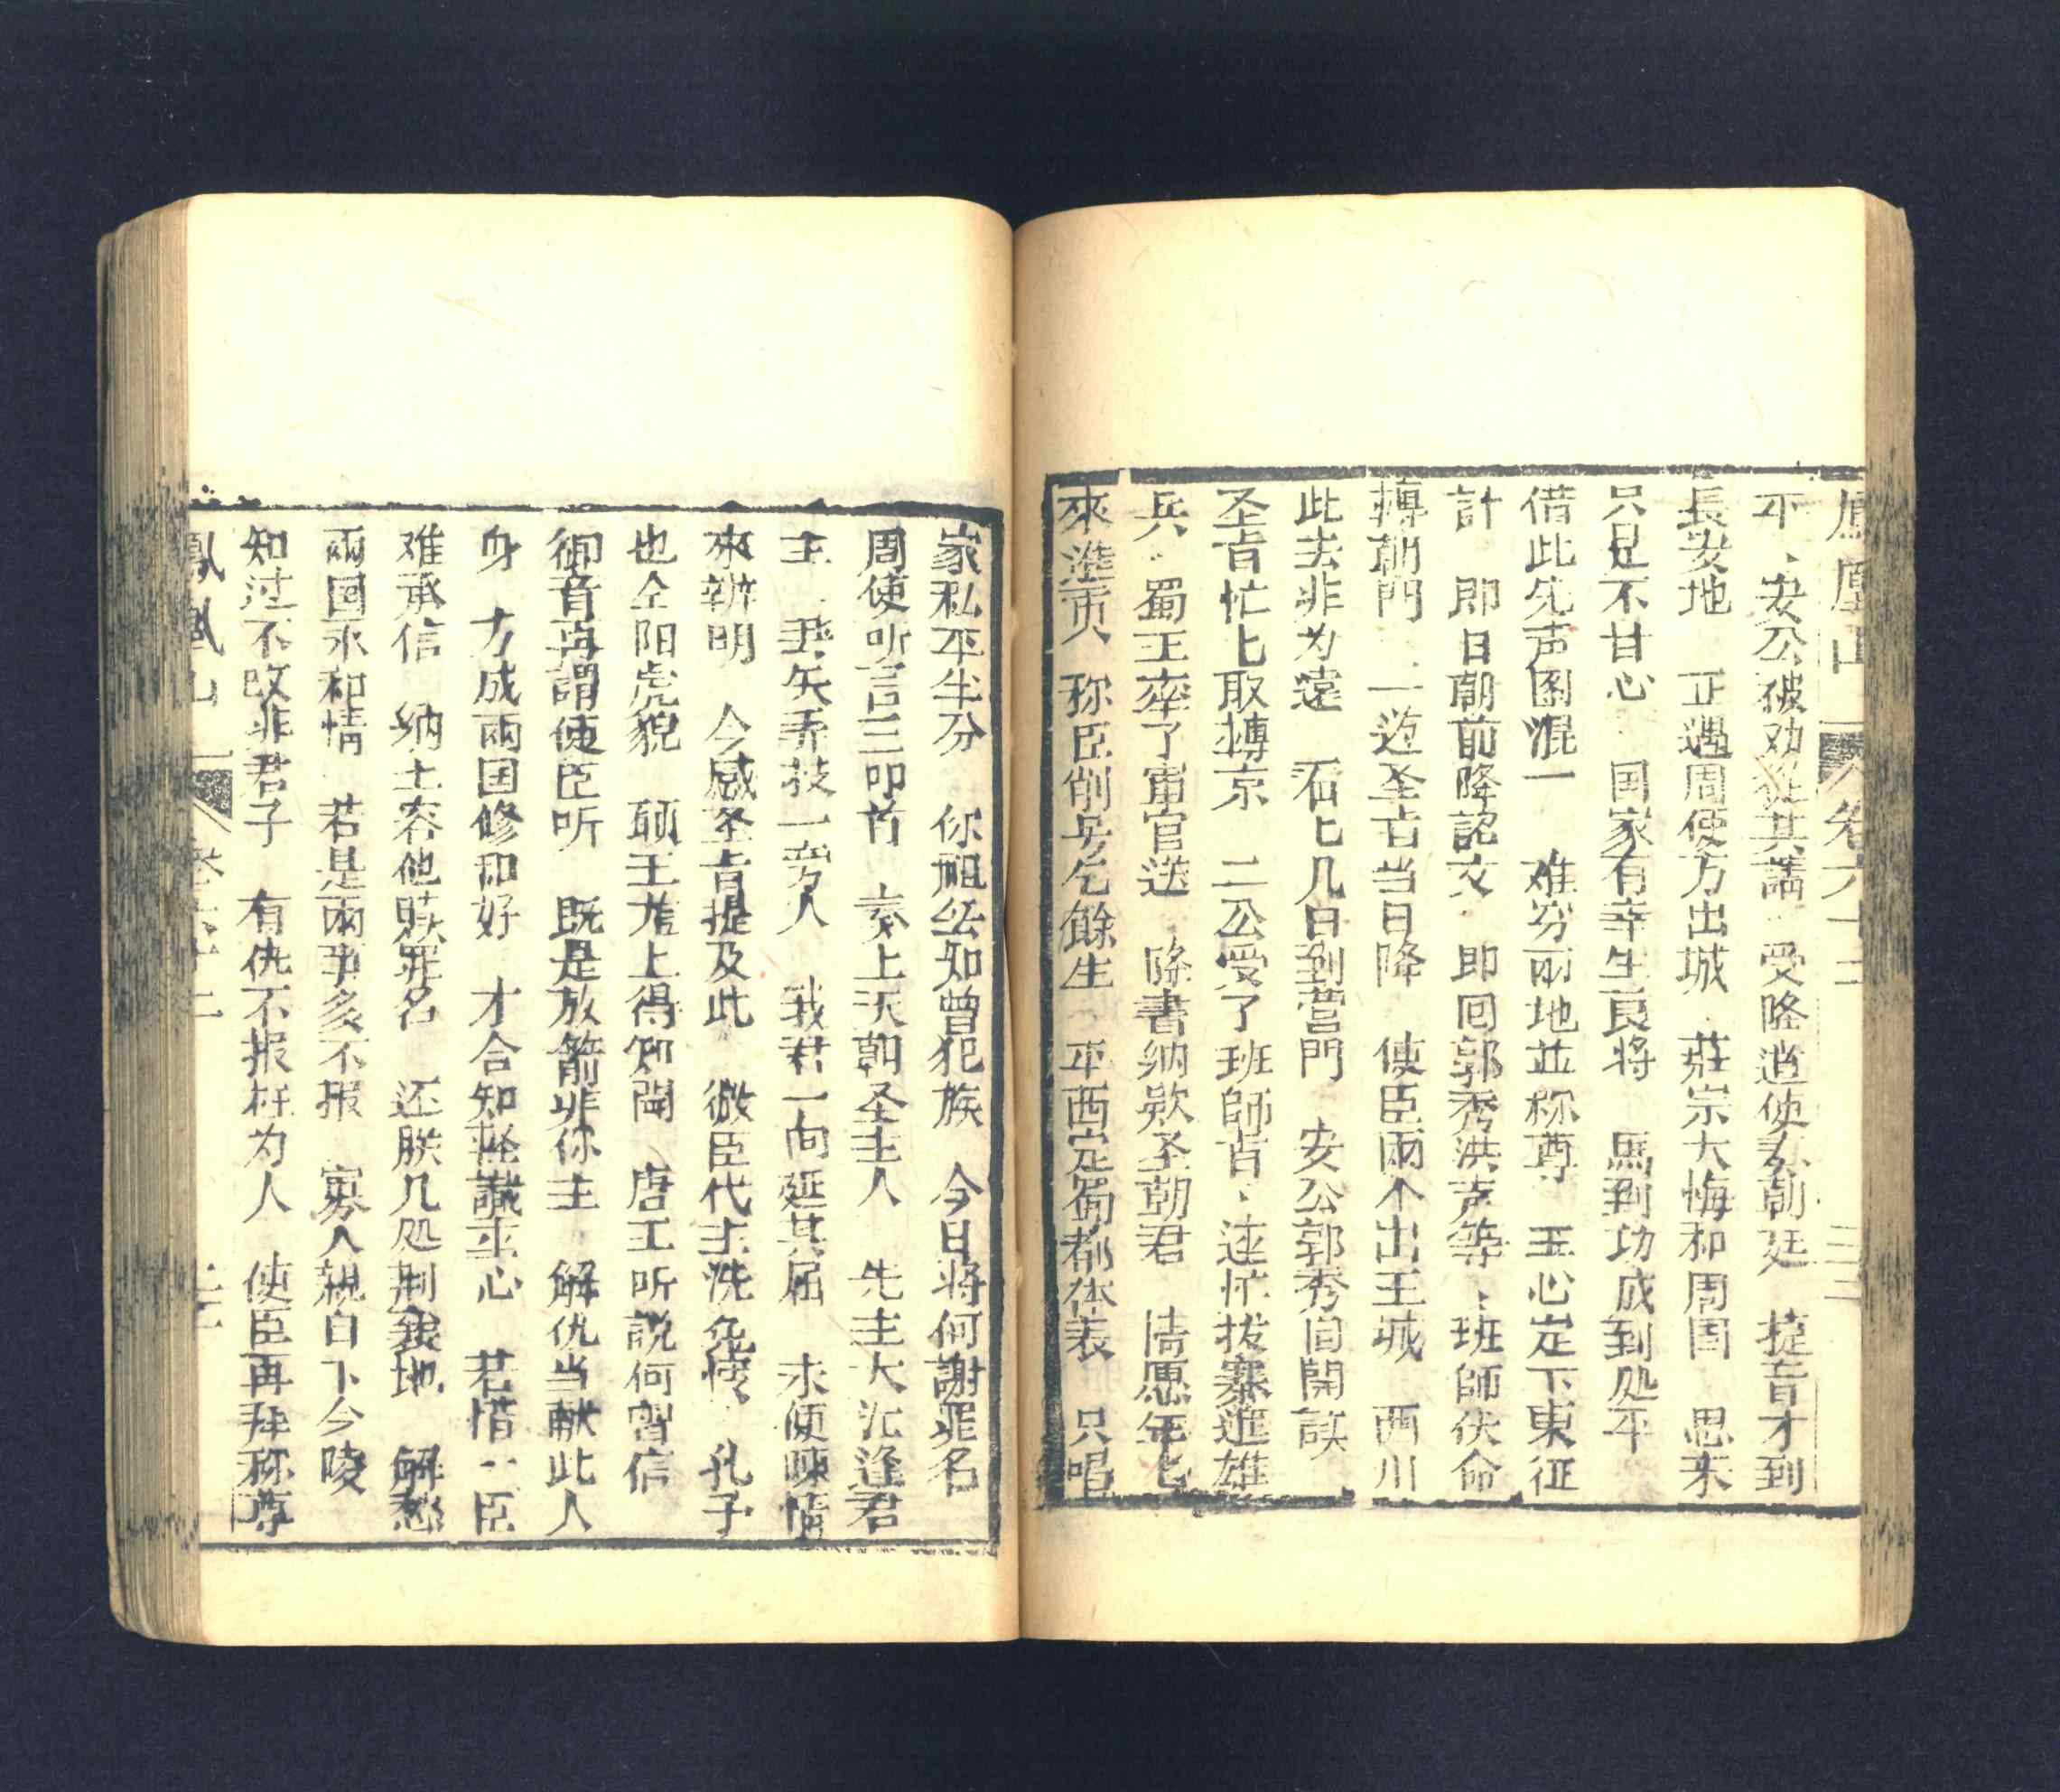 鳳凰山 卷六十二 三
平、安公被劝從其議 受降逍使奏朝廷 捷音才到
長安地 正遇周使方出城 莊宗大悔和周国 思来
只是不甘心 国家有幸生良将 馬到功成到処平
借此先声图混一 难穷兩地並称尊 王心定下東征
計 即日朝前降詔文 即囘郭秀洪声等 班師伏命
轉朝門 一道圣旨当日降 使臣兩个出王城 西川
此去非为遠 不匕几日到营門 安公郭秀自開読
圣旨忙匕取轉京 二公受了班師旨 速忙拔寨進雄
兵 蜀王率了軍官送 降書纳欵圣朝君 情愿年匕
來進貢 称臣削号乞餘生 平西定蜀都休表 只唱
家私平半分 你祖公知曾犯族 今日将何謝罪名
周使听言三叩首 奏上天朝圣主人 先主大沁逢君
主 主 弄技一旁人 我君一向延其屈 未便 情
來辨明 今感圣旨提及此 微臣代主洗免情 孔子
也仝阳虎貌 頋王龙上得知聞 唐王听說何曾信
御音再謂使臣听 既是放箭非你主 解仇当献此人
身 方成兩国修和好 才合知 識 心 若惜一臣
难承信 纳土容他贖罪名 还朕几処荆襄地 解愁
兩国永和情 若是兩事多不报 寡人親自下今陵
知过不改非君子 有仇不报枉为人 使臣再拜称尊
鳳凰山 卷六十二